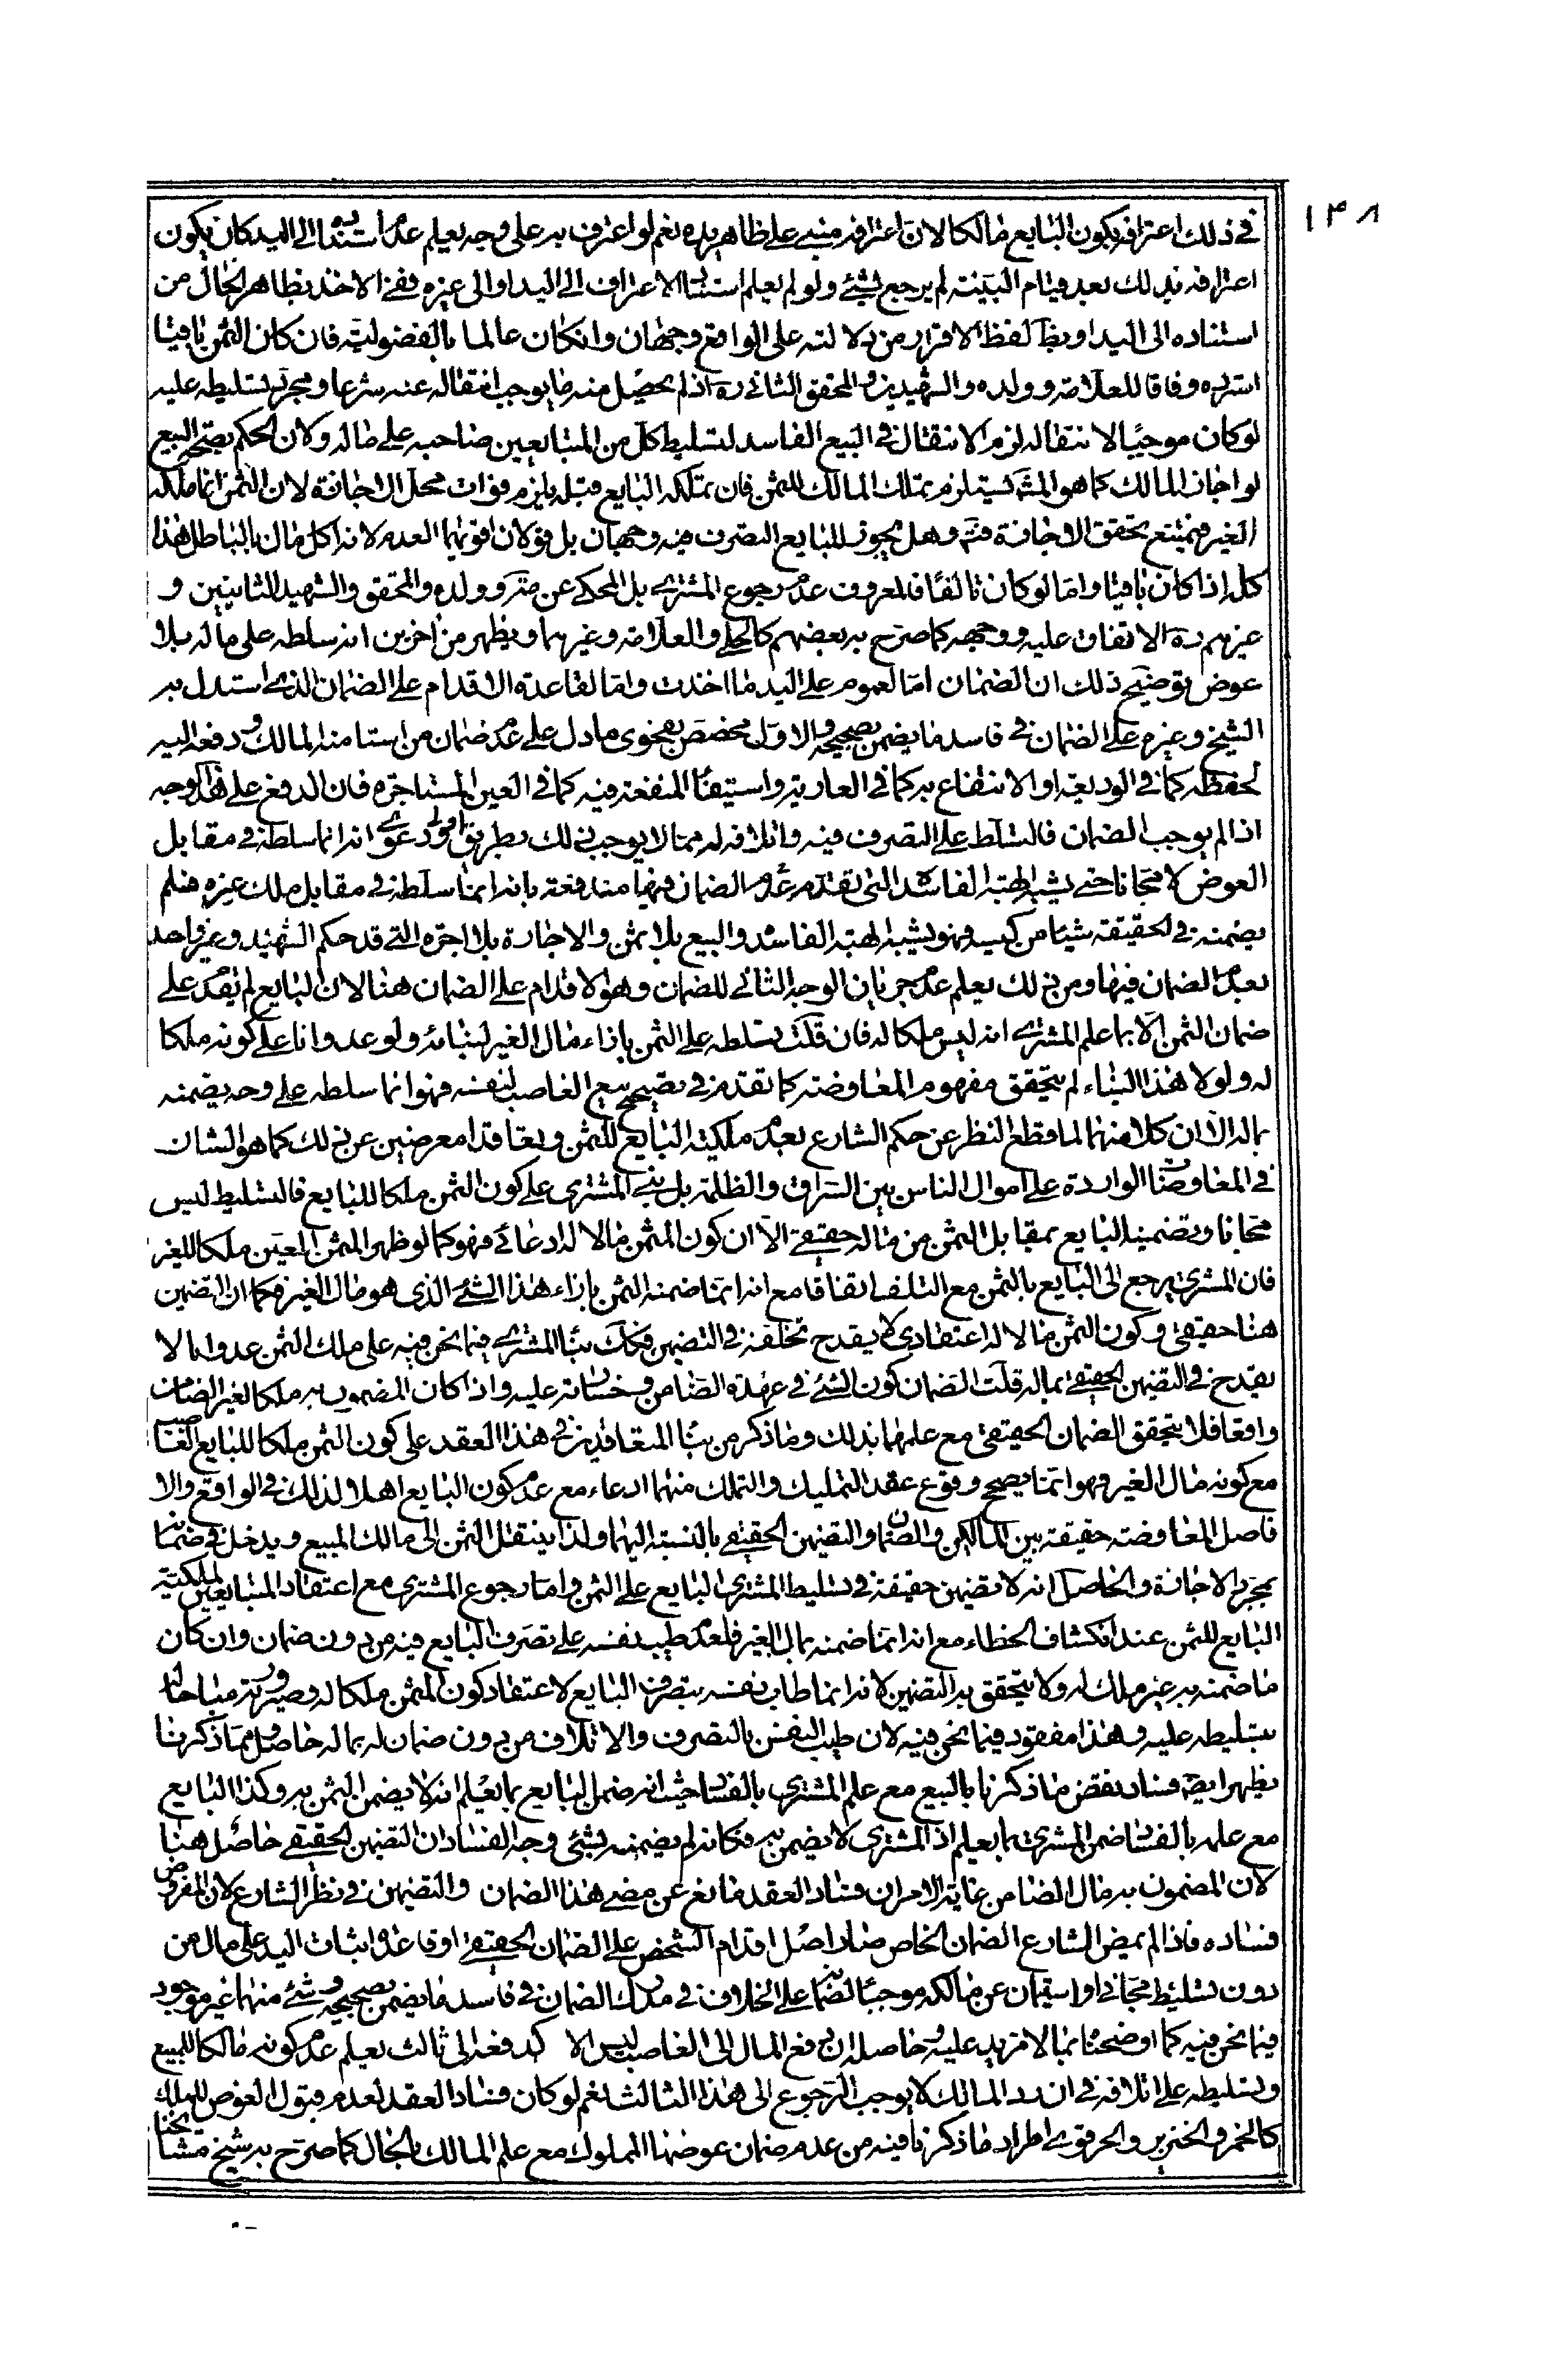 ١٤٨
في ذلك اعترافه بكون البايع مالكا لان اعترافه مبني على ظاهر يده نعم لو اعترف به على وجه يعلم عدم استناده الى اليد كان يكون
اعترافه بذلك بعد قيام البينة لم يرجع بشئ ولو لم يعلم استناد الاعتراف الى اليد او الى غيره ففي الاخذ بظاهر الحال من
استناده الى اليد او بظ لفظ الاقرار من دلالته على الواقع وجهان وانكان عالما بالفضولية فان كان الثمن باقيا
استرده وفاقا للعلامة وولده والشهيدين والمحقق الثاني ره اذ لم يحصل منه ما يوجب انتقاله عنه شرعا ومجرد تسليطه عليه
لو كان موجبا لانتقاله لزم الانتقال في البيع الفاسد لتسليط كل من المتبايعين صاحبه على ماله ولان الحكم بصحة البيع
لو اجاز المالك كما هو المش يستلزم تملك المالك للثمن فان تملكه البايع قبله يلزم فوات محل الاجازة لان الثمن انما ملكه
الغير فيمتنع تحقق الاجازة فت وهل يجوز للبايع التصرف فيه وجهان بل قولان اقويهما العدم لانه اكل مال بالباطل هذا
كله اذا كان باقيا واما لو كان تالفا فالمعروف عدم رجوع المشتري بل المحكي عن مة وولده والمحقق والشهيد الثانيين و
غيرهم ره الاتفاق عليه ووجهه كما صرح به بعضهم كالحلي والعلامة وغيرهما ويظهر من اخرين انه سلطه على ماله بلا
عوض توضيح ذلك ان الضمان اما لعموم على اليد ما اخذت واما لقاعدة الاقدام على الضمان الذي استدل به
الشيخ وغيره على الضمان في فاسد ما يضمن بصحيحه والاول مخصص بفحوى ما دل على عدم ضمان من استامنه المالك ودفعه اليه
لحفظه كما في الوديعة او الانتفاع به كما في العارية واستيفاء المنفعة فيه كما في العين المستاجرة فان الدفع على هذا الوجه
اذا لم يوجب الضمان فالتسلط على التصرف فيه واتلافه له مما لا يوجب ذلك بطريق اولى ودعوى انه انما سلطه في مقابل
العوض لا مجانا حتى يشبه الهبة الفاسدة التي تقدم عدم الضمان فيها مندفعة بانه انما سلطه في مقابل ملك غيره فلم
يضمنه في الحقيقة شيئا من كيسه فهو يشبه الهبة الفاسدة والبيع بلا ثمن والاجارة بلا اجرة التي قد حكم الشهيد وغير واحد
بعدم الضمان فيها ومن ذلك يعلم عدم جريان الوجه الثاني للضمان وهو الاقدام على الضمان هنا لان البايع لم يقدم على
ضمان الثمن الا بما علم المشتري انه ليس ملكا له فان قلت تسلطه على الثمن بازاء مال الغير لبنائه ولو عدوانا على كونه ملكا
له ولولا هذا البناء لم يتحقق مفهوم المعاوضة كما تقدم في تصحيح بيع الغاصب لنفسه فهو انما سلطه على وجه يضمنه
بماله الا ان كلا منهما لما قطع النظر عن حكم الشارع بعدم ملكية البايع للثمن وتعاقدا معرضين عن ذلك كما هو الشان
في المعاوضات الواردة على اموال الناس بين السراق والظلمة بل بنى المشتري على كون الثمن ملكا للبايع فالتسليط ليس
مجانا وتضمينه البايع بمقابل الثمن من ماله حقيقي الا ان كون المثمن مالا له ادعائي فهو كما لو ظهر المثمن المعين ملكا للغير
فان المشتري يرجع الى البايع بالثمن مع التلف اتفاقا مع انه انما ضمنه الثمن بازاء هذا الشئ الذي هو مال الغير فكما ان التضمين
هنا حقيقي وكون المثمن مالا له اعتقادي لا يقدح تخلفه في التضمين فكك بناء المشتري فيما نحن فيه على ملك المثمن عدوانا لا
يقدح في التضمين الحقيقي بماله قلت الضمان كون الشئ في عهدة الضامن وخسارته عليه واذا كان المضمون به ملكا لغير الضامن
واقعا فلا يتحقق الضمان الحقيقي مع علمهما بذلك وما ذكر من بناء المتعاقدين في هذا العقد على كون الثمن ملكا للبايع الغاصب
مع كونه مال الغير فهو انما يصحح وقوع عقد التمليك والتملك منهما ادعاء مع عدم كون البايع اهلا لذلك في الواقع والا
فاصل المعاوضة حقيقة بين المالكين والضمان والتضمين الحقيقي بالنسبة اليهما ولذا ينتقل الثمن الى مالك المبيع ويدخل في ضمانه
بمجرد الاجازة والحاصل انه لا تضمين حقيقة في تسليط المشتري البايع على الثمن واما رجوع المشتري مع اعتقاد المتبايعين لملكية
البايع للثمن عند انكشاف الخطاء مع انه انما ضمنه بمال الغير فلعدم طيب نفسه على تصرف البايع فيه من دون ضمان وان كان
ما ضمنه به غير ملك له ولا يتحقق به التضمين لانه انما طاب نفسه بتصرف البايع لاعتقاد كون المثمن ملكا له وصيرورته مباحا له
بتسليطه عليه وهذا مفقود فيما نحن فيه لان طيب النفس بالتصرف والاتلاف من دون ضمان له بماله حاصل ومما ذكرنا
يظهر ايضا فساد نقض ما ذكرنا بالبيع مع علم المشتري بالفساد حيث انه ضمن البايع بما يعلم انه لا يضمن الثمن به وكذا البايع
مع علمه بالفساد ضمن المشتري بما يعلم ان المشتري لا يضمن به فكانه لم يضمنه بشئ وجه الفساد ان التضمين الحقيقي حاصل هنا
لان المضمون به مال الضامن غاية الامر ان فساد العقد مانع عن مضي هذا الضمان والتضمين في نظر الشارع لان المفروض
فساده فاذا لم يمض الشارع الضمان الخاص صار اصل اقدام الشخص على الضمان الحقيقي او قاعدة اثبات اليد على مال من
دون تسليط مجاني او استيمان عن مالكه موجبا لضمانه على الخلاف في مدرك الضمان في فاسد ما يضمن بصحيحه وشئ منهما غير موجود
فيما نحن فيه كما اوضحناه بما لا مزيد عليه وحاصله ان دفع المال الى الغاصب ليس الا كدفعه الى ثالث يعلم عدم كونه مالكا للمبيع
وتسليطه على اتلافه في ان رد المالك لا يوجب الرجوع الى هذا الثالث نعم لو كان فساد العقد لعدم قبول العوض للملك
كالخمر والخنزير والحر قوى اطراد ما ذكرنا فيه من عدم ضمان عوضها المملوك مع علم المالك بالحال كما صرح به شيخ مشايخنا